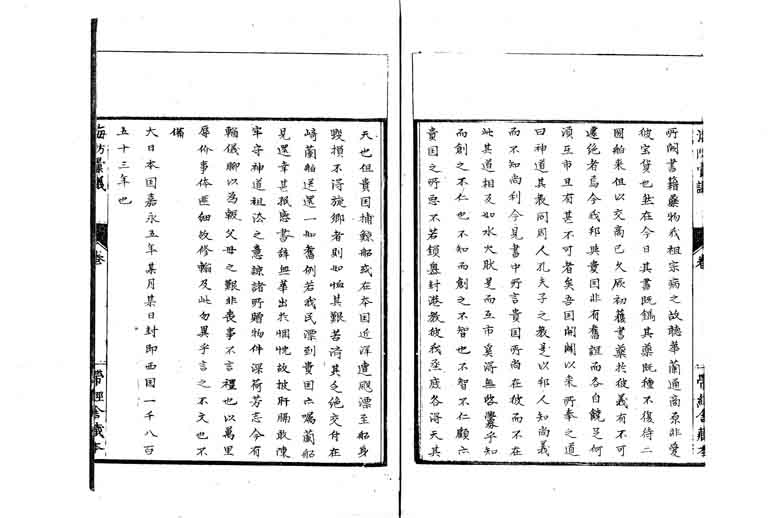 所闕書籍藥物我祖宗病之故聽華蘭通商原非愛
彼宝貨也然在今日其書既鐫其藥既種不復待二
國舶来但以交商已久厥初獲書藥於彼義有不可
遽絶者焉今我邦與貴国非有舊誼而各自饒足何
須互市且有甚不可者矣吾国開闢以来所奉之道
曰神道其教同周人孔夫子之教是以邦人知尚義
而不知尚利今見書中所言貴国所尚在彼而不在
此其道相反如水火肽是而互市奚得無啓釁乎知
而創之不仁也不知而創之不智也不智不仁顧亦
貴国之所悪不若鎖臯封港教彼我至底各得天其
天也但貴国捕鯨船或在本国近洋遭颶漂至船身
毀損不得旋郷者則如恤其艱苦済其乏絶交付在
崎蘭舶送還一如舊例若我民漂到貴国亦嘱蘭舶
見還幸甚祇應書辞無華出於悃愊故披肝膈敢陳
牢守神道祖法之意諒諸所贈物件深荷芳志今有
輶儀聊以為報父母之艱非喪事不言禮也以萬里
辱价事体匪細故修翰及此勿異乎言之不文也不
備
大日本国嘉永五年某月某日封即西国一千八百
五十三年也
海防彙議
卷
帶經舎藏本